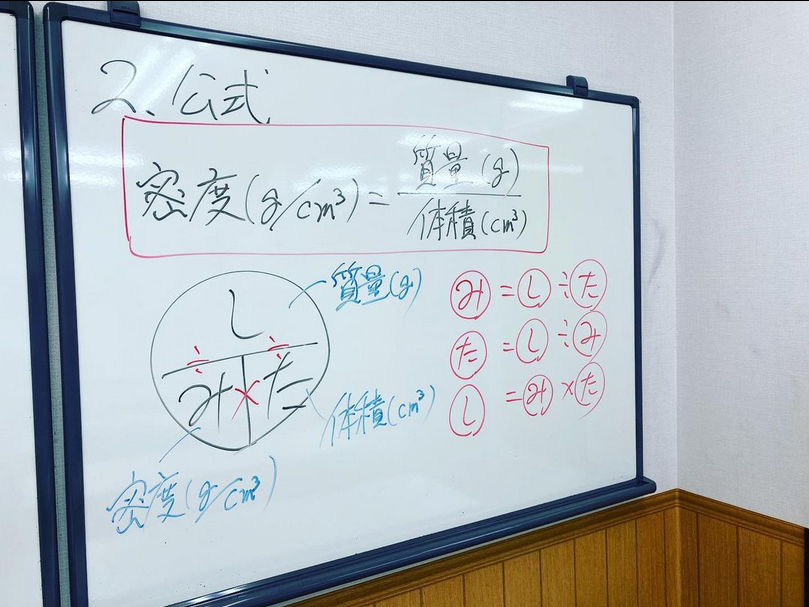 2、公式
密度(g/cm³)=
質量(g)
体積(cm³)
し
÷ ÷
み×た
質量(g)
体積(cm³)
密度(g/cm³)
み=し÷た
た=し÷み
し=み×た